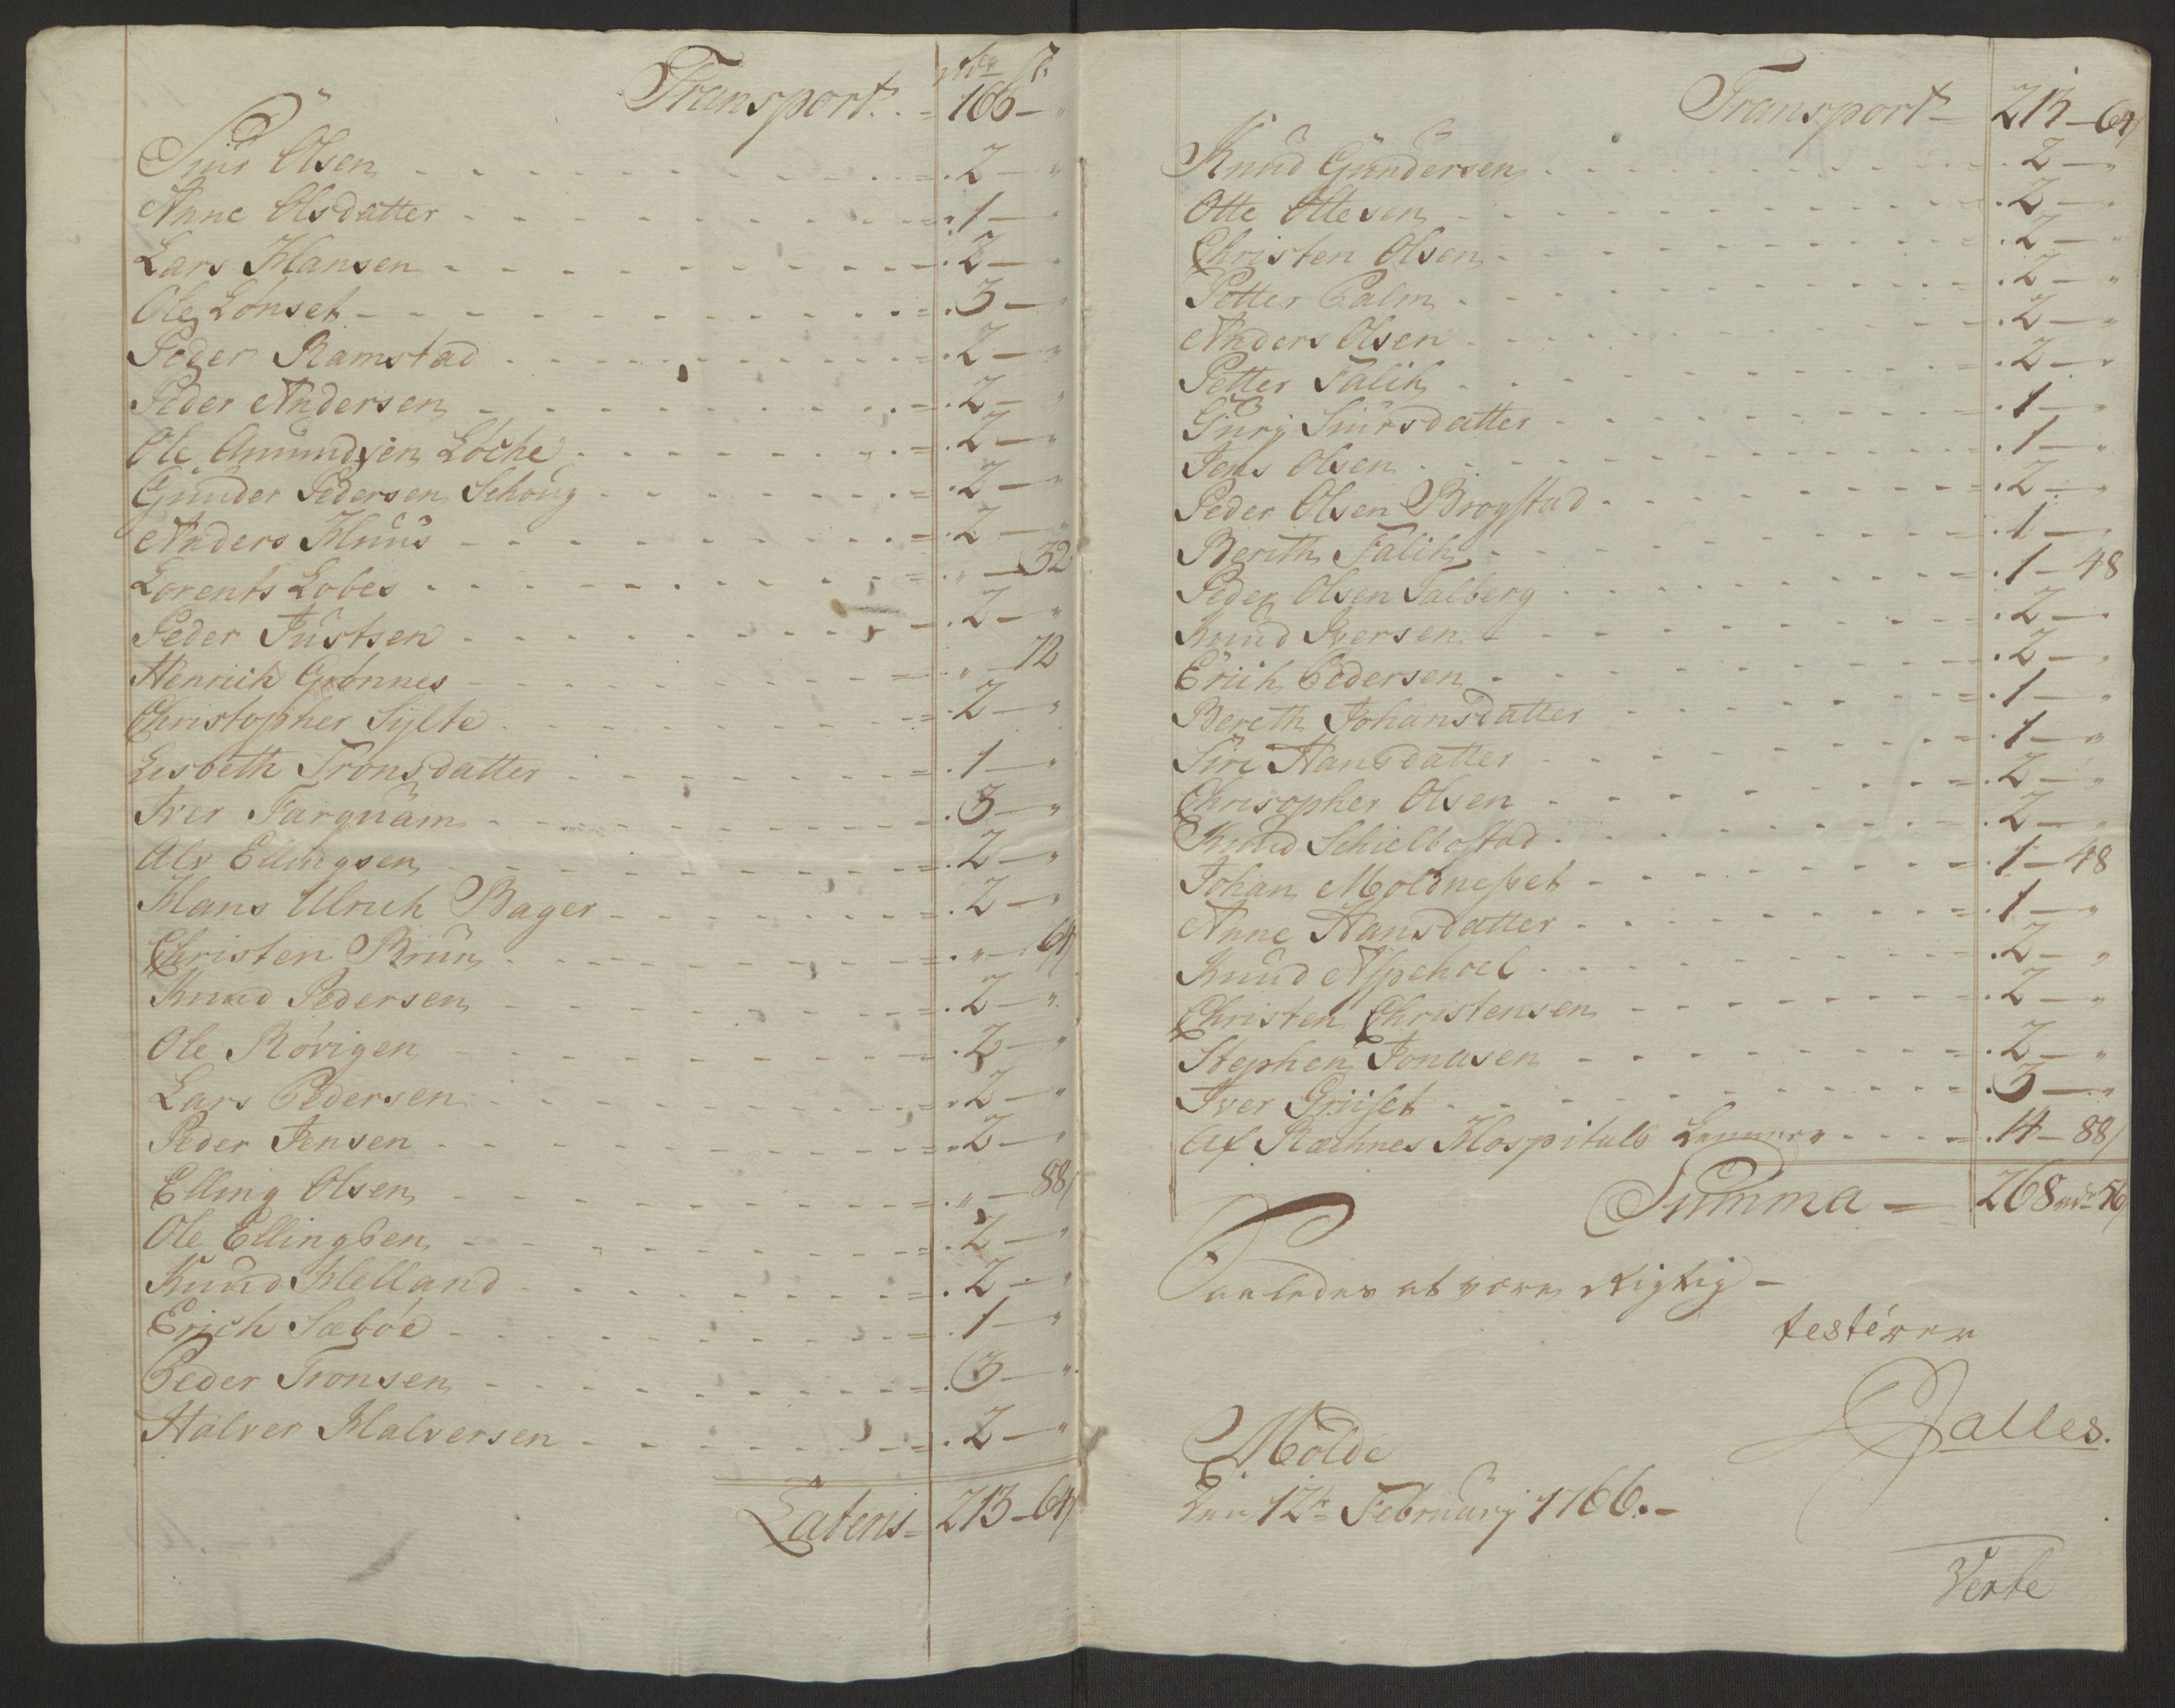 rdr ß
Transport . . = 166 – "
Siur Olsen . . . = . 2 – "
Anne Olsdatter . . . = . 1 – "
Lars Hansen . . . = . 2 – "
Ole Lønset . . . = . 3 – "
Peder Ramstad . . . = . 2 – "
Peder Andersen . . . = . 2 – "
Ole Amundsen Løche . . . = . 2 – "
Gunder Pedersen Schoug . . . = . 2 – "
Anders Kruus . . . = . 2 – "
Lorents Lobes . . . = . " – 32
Peder Justsen . . . = . 2 – "
Henrich Grønnes . . . = . " – 72
Christopher Sylte . . . = . 2 – "
Lisbeth Tronsdatter . . . = . 1 – "
Iver Farquam . . . = . 3 – "
Alv Ellingsen . . . = . 2 – "
Hans Ulrich Bager . . . = . 2 – "
Christen Bruun . . . = . " – 64/
Knud Pedersen . . . = . 2 – "
Ole Rørigen . . . = . 2 – "
Lars Pedersen . . . = . 2 – "
Peder Jensen . . . = . 2 – "
Elling Olsen . . . = . " – 88/
Ole Ellingsen . . . = . 2 – "
Knud Helland . . . = . 2 – "
Erich Sæbøe . . . = . 1 – "
Peder Tronsen . . . = . 3 – "
Halver Halversen . . . = . 2 – "
Lateris = 213 – 64/
Transport – 213 – 64/
Knud Gundersen . . . 2 – "
Otte Ottesen . . . = . 2 – "
Christen Olsen . . . = . 2 – "
Petter Palm . . . = . 2 – "
Anders Olsen . . . = . 2 – "
Petter Falch . . . = . 2 – "
Gury Siursdatter . . . = . 1 – "
Jens Olsen . . . = . 1 – "
Peder Olsen Brogstad . . . = . 2 – "
Berith Falch . . . = . 1 – "
Peder Olsen Talberg . . . = . 1 – 48
Knud Iversen . . . = . 2 – "
Erich Pedersen . . . = . 2 – "
Bereth Johansdatter . . . = . 1 – "
Siri Hansdatter . . . = . 1 – "
Chrisopher Olsen . . . = . 2 – "
Knud Schielbostad . . . = . 2 – "
Johan Moldnesset . . . = . 1 – 48
Anne Hansdatter . . . = . 1 – "
Knud Aspehoel . . . = . 2 – "
Christen Christensen . . . = . 2 – "
Stephen Jonasen . . . = . 2 – "
Iver Griiset . . . = . 3 – "
Af Ræchnes Hospitals Lemmer . . . = . 14 – 88/
Summa = 268 rdr 56/
Saaledes at være Rigtig –
testérer
Molde
Den 12te February 1766. –
Palles.
Verte